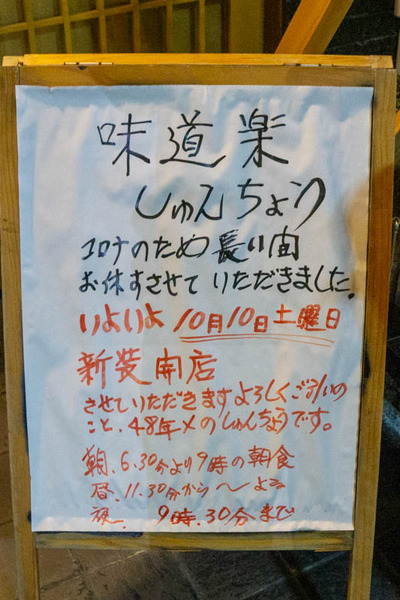 味道楽
しゅんちょう
コロナのため長い間
お休すさせていただきました。
いよいよ 10月10日土曜日
新装開店
させていただきますよろしくごひいの
こと、48年メのしゅんちょうです。
朝.6.30分より9時の朝食
昼.11.30分から〜よる
夜. 9時.30分まで